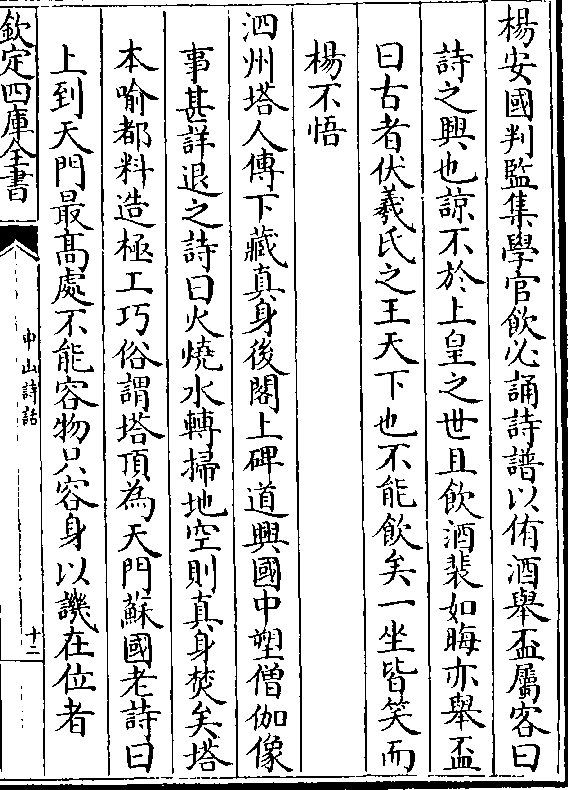 楊安國判監集學官飲必誦詩譜以侑酒舉盃屬客曰
詩之興也諒不於上皇之世且飲酒裴如晦亦舉盃
曰古者伏羲氏之王天下也不能飲矣一坐皆笑而
楊不悟
泗州塔人傳下藏真身後閣上碑道興國中塑僧伽像
事甚詳退之詩曰火燒水轉掃地空則真身焚矣塔
本喻都料造極工巧俗謂塔頂為天門蘇國老詩曰
上到天門最髙處不能容物只容身以譏在位者
欽定四庫全書
中山詩話
十二